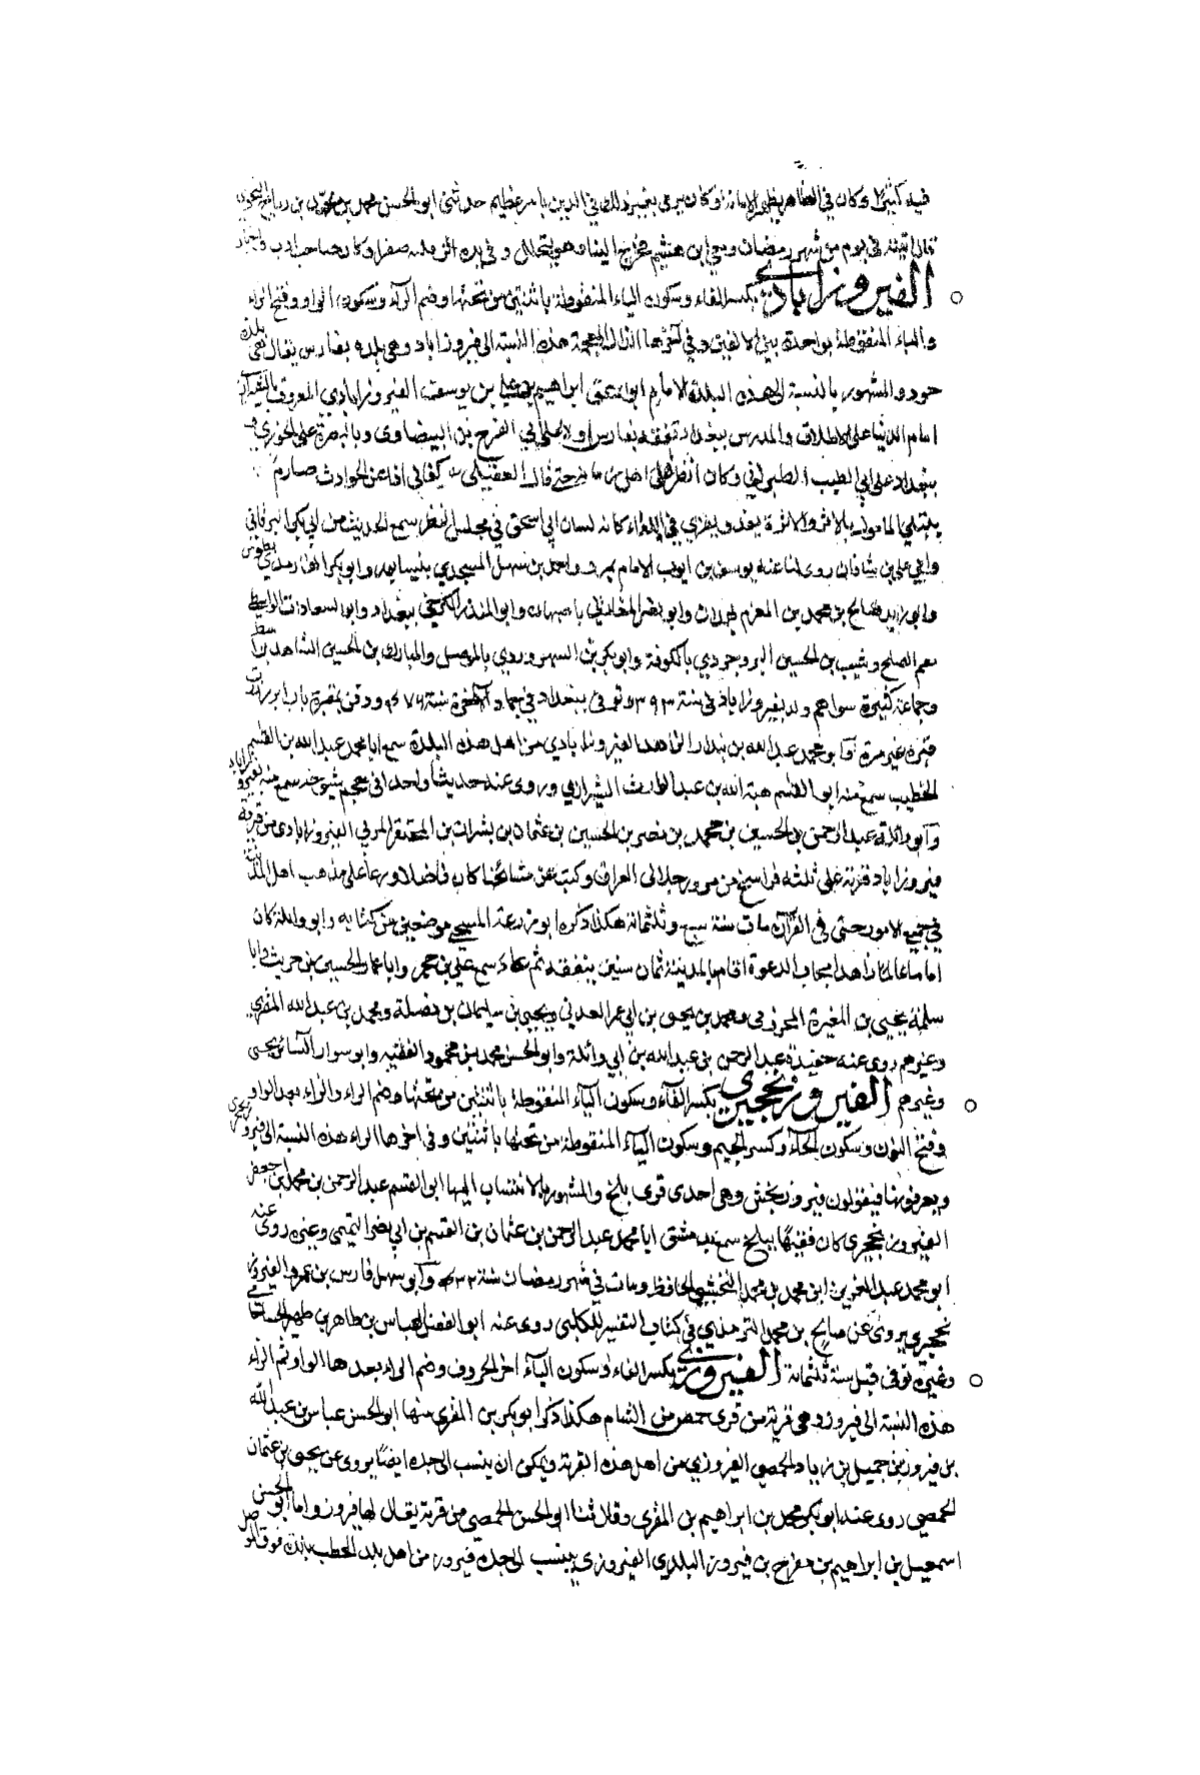 فيه كثيرا وكان في الظاهر يظهر الامامة وكان يرمى بغير ذلك في الدين بامر عظيم حدثني ابو الحسن محمد بن محمد بن
قال اتيته في يوم من شهر رمضان ومعي ابن هشيم فخرج الينا وهو يتخلل وفي يده اثر صفرا وكان صاحب ادب واخبار
الفيروزاباذي بكسر الفاء وسكون الياء المنقوطة باثنتين من تحتها وضم الراء وسكون الواو وفتح الزاء
والباء المنقوطة بواحدة بين الالفين وفي آخرها الذال المعجمة هذه النسبة الى فيروزاباد وهي بلدة بفارس يقال هي بلدة
جور والمشهور بالنسبة الى هذه البلدة الامام ابو اسحق ابراهيم بن علي بن يوسف الفيروزابادي المعروف بالشيرازي
امام الدنيا على الاطلاق والمدرس ببغداد تفقه بفارس اولا على ابي الفرج بن البيضاوى وبالبصرة على الخوزي و
ببغداد على ابي الطيب الطبري وكان انظر اهل زمانه حتى قال العقيلي كفاني اذا عن الحوادث صارم
ينيلني المامول بالاثر والاثرة يقد ويفري في اللقاء كانه لسان ابي اسحق في مجلس النظر سمع الحديث من ابي بكر البرقاني
وابي علي بن شاذان روى لنا عنه يوسف بن ايوب الامام بمرو واحمد بن سهل المسجدي بنيسابور وابو بكر بطوس
وابو زيد صالح بن محمد بن المعزم بهمدان وابو نصر باصبهان وابو المنذر الكرخي ببغداد وابو السعادات الواسطي
بفم الصلح وشبيب بن الحسين البروجردي بالكوفة وابو بكر بن السهروردي بالموصل والمبارك بن الحسين الشاهد بواسط
وجماعة كثيرة سواهم ولد بفيروزاباد في سنة ٣٩٣ وتوفى ببغداد في جمادى الآخرة سنة ٤٧٦ ودفن بمقبرة باب ابرز زرت
قبره غير مرة وابو محمد عبد الله بن بندار الزاهد الفيروزابادي من اهل هذه البلدة سمع ابا محمد عبد الله بن القسم
الخطيب سمع منه ابو القسم هبة الله بن عبد الوارث الشيرازي وروى عنه حديثا واحدا في معجم شيوخه سمع منه بفيروزاباد
وابو وائلة عبد الرحمن بن الحسين بن محمد بن نصر بن الحسين بن عثمان بن بشر المزني الفيروزابادى من قرية
فيروزاباد قرية على ثلثه فراسخ من مرو رحل الى العراق وكتب عن مشائخنا كان فاضلا ورعا على مذهب اهل المدينة
في جميع الامور حتى في القرآن مات سنة سبع وثلثمائة هكذا ذكره ابو زرعة السبحي موضعين من كتابه وابو وائلة كان
اماما عالما زاهدا مجاب الدعوة اقام بالمدينة ثمان سنين يتفقه ثم عاد سمع علي بن حجر وابا عمار الحسين بن حريث وابا
سلمة يحيى بن المغيرة المخزومي ومحمد بن يحيى بن ابي عمر العدني ويحيى بن سليمان بن نضلة ومحمد بن عبد الله المقري
وغيرهم روى عنه حفيده عبد الرحمن بن عبد الله بن ابي وائلة وابو الحسن محمد بن محمود الفقيه وابو سوار
وغيرهم الفيروزنخجيري بكسر الفاء وسكون الياء المنقوطة باثنتين من تحتها وضم الراء والزاء بعد الواو
وفتح النون وسكون الخاء وكسر الجيم وسكون الياء المنقوطة من تحتها باثنتين وفي اخرها الراء هذه النسبة الى فيروزنخجيري
ويعرفونها فيقولون فيروزنخش وهي احدى قرى بلخ والمشهور بالانتساب اليها ابو القسم عبد الرحمن بن محمد بن جعفر
الفيروزنخجيري كان فقيها ببلخ سمع بدمشق ابا محمد عبد الرحمن بن عثمان بن القسم بن ابي نصر التميمي وغيره روى عنه
ابو محمد عبد العزيز بن محمد بن محمد النخشبي الحافظ ومات في شهر رمضان سنة وابو سهل فارس بن عمرو الفيروز
نخجيري يروى عن صالح بن محمد الترمذي في كتاب التفسير للكلبي روى عنه ابو الفضل العباس بن طاهر بن ظهير
وغيره توفى قبل سنة ثلثمائة الفيروزي بكسر الفاء وسكون الياء آخر الحروف وضم الراء بعدها الواو ثم الزاء
هذه النسبة الى فيروز وهي قرية من قرى حمص من الشام هكذا ذكر ابو بكر بن المقري منها ابو الحسن عباس بن عبد الله
بن فيروز بن جميل بن زياد الحمصي الفيروزي من اهل هذه القرية ويمكن ان ينسب الى جده ايضا يروى عن يحيى بن عثمان
الحمصي روى عنه ابو بكر محمد بن ابراهيم بن المقري وقال ثنا ابو الحسن الحمصي من قرية يقال لها فيروز واما ابو الحسن
اسمعيل بن ابراهيم بن مفرح بن فيروز البلدي الفيروزي ينسب الى جده فيروز من اهل بلد الحطب بلدة فوق الموصل